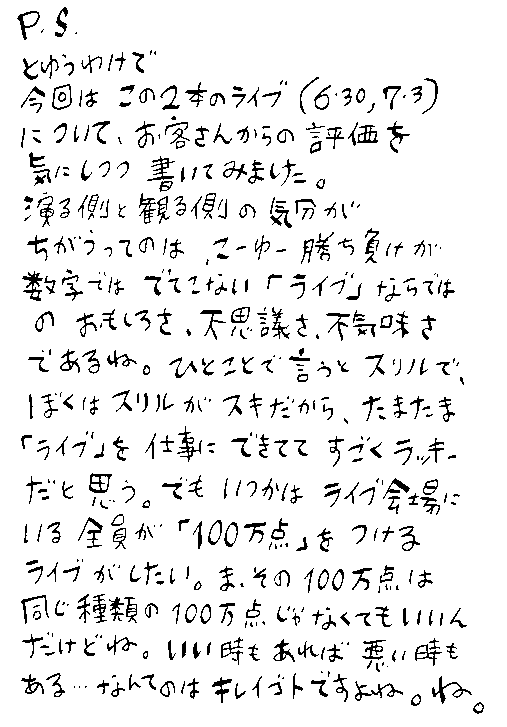 P.S.
とゆうわけで
今回は この2本のライブ (6・30, 7・3)
について、お客さんからの 評価を
気にしつつ 書いてみました。
演る側と観る側の気分が
ちがうってのは、こーゆー勝ち負けが
数字では でてこない「ライブ」ならでは
の おもしろさ、不思議さ、不気味さ
であるね。ひとことで言うと スリルで、
ぼくは スリルが スキだから、たまたま
「ライブ」を 仕事に できてて すごくラッキー
だと 思う。でも いつかは ライブ会場に
いる 全員が「100万点」を つける
ライブがしたい。ま、その100万点は
同じ種類の100万点じゃなくてもいいん
だけどね。いい時もあれば 悪い時も
ある…なんてのは キレイゴトですよね。ね。